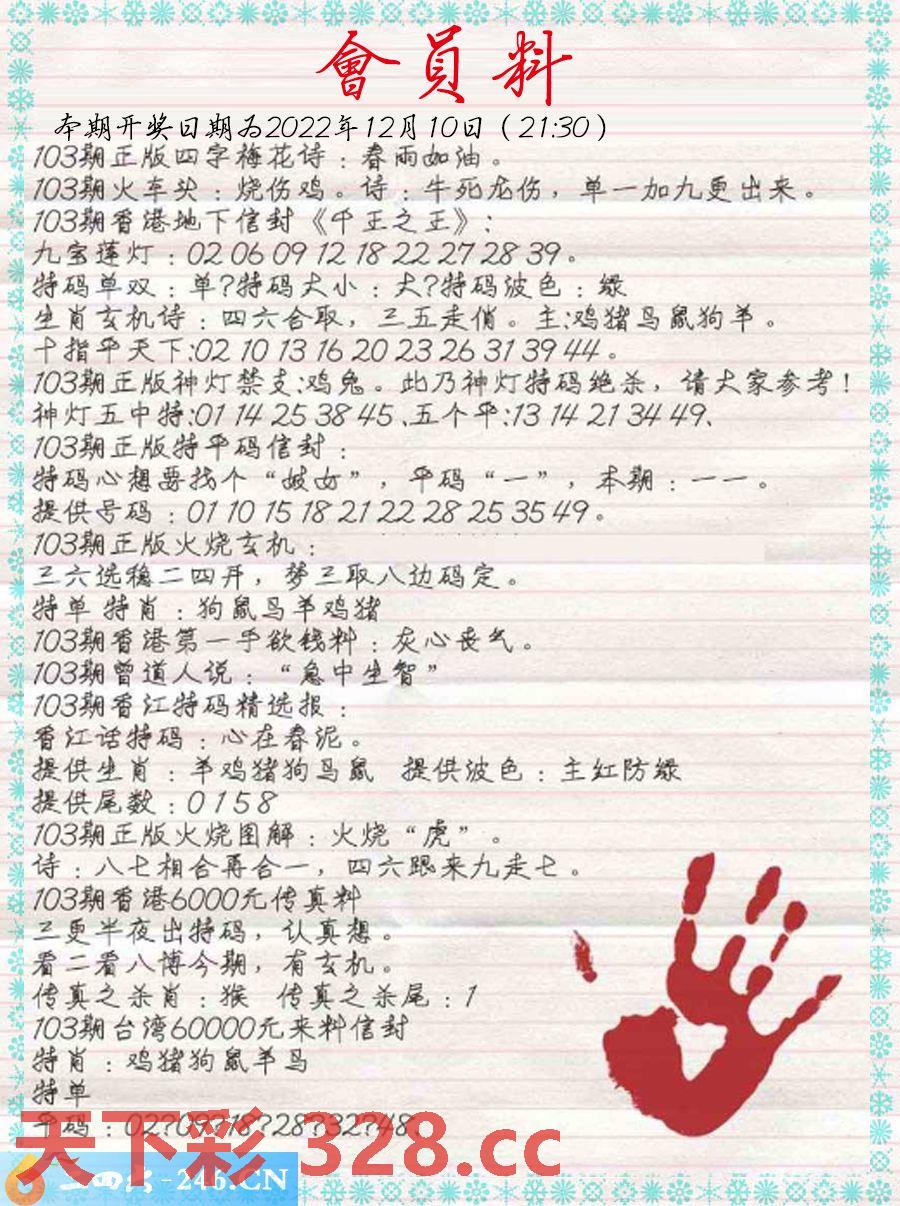 會員料
本期开奖日期为2022年12月10日（21:30）
103期正版四字梅花诗：春雨如油。
103期火车头：烧伤鸡。诗：牛死龙伤，单一加九更出来。
103期香港地下信封《千王之王》:
九宝莲灯：02 06 09 12 18 22 27 28 39。
特码单双：单?特码大小：大?特码波色：绿
生肖玄机诗：四六合取，三五走俏。主:鸡猪马鼠狗羊。
十指平天下:02 10 13 16 20 23 26 31 39 44。
103期正版神灯禁支:鸡兔。此乃神灯特码绝杀，请大家参考！
神灯五中特:01 14 25 38 45、五个平:13 14 21 34 49、
103期正版特平码信封：
特码心想要找个“妓女”，平码“一”，本期：一一。
提供号码：01 10 15 18 21 22 28 25 35 49。
103期正版火烧玄机：
三六选稳二四开，梦三取八边码定。
特单 特肖：狗鼠马羊鸡猪
103期香港第一手欲钱料：灰心丧气。
103期曾道人说：“急中生智”
103期香江特码精选报：
香江话特码：心在春泥。
提供生肖：羊鸡猪狗马鼠 提供波色：主红防绿
提供尾数：0 1 5 8
103期正版火烧图解：火烧“虎”。
诗：八七相合再合一，四六跟来九走七。
103期香港6000元传真料
三更半夜出特码，认真想。
看二看八博今期，有玄机。
传真之杀肖：猴 传真之杀尾：1
103期台湾60000元来料信封
特肖：鸡猪狗鼠羊马
特单
平码：02?09?18?28?32?48、
天下彩 328.cc
二四六-246.CN